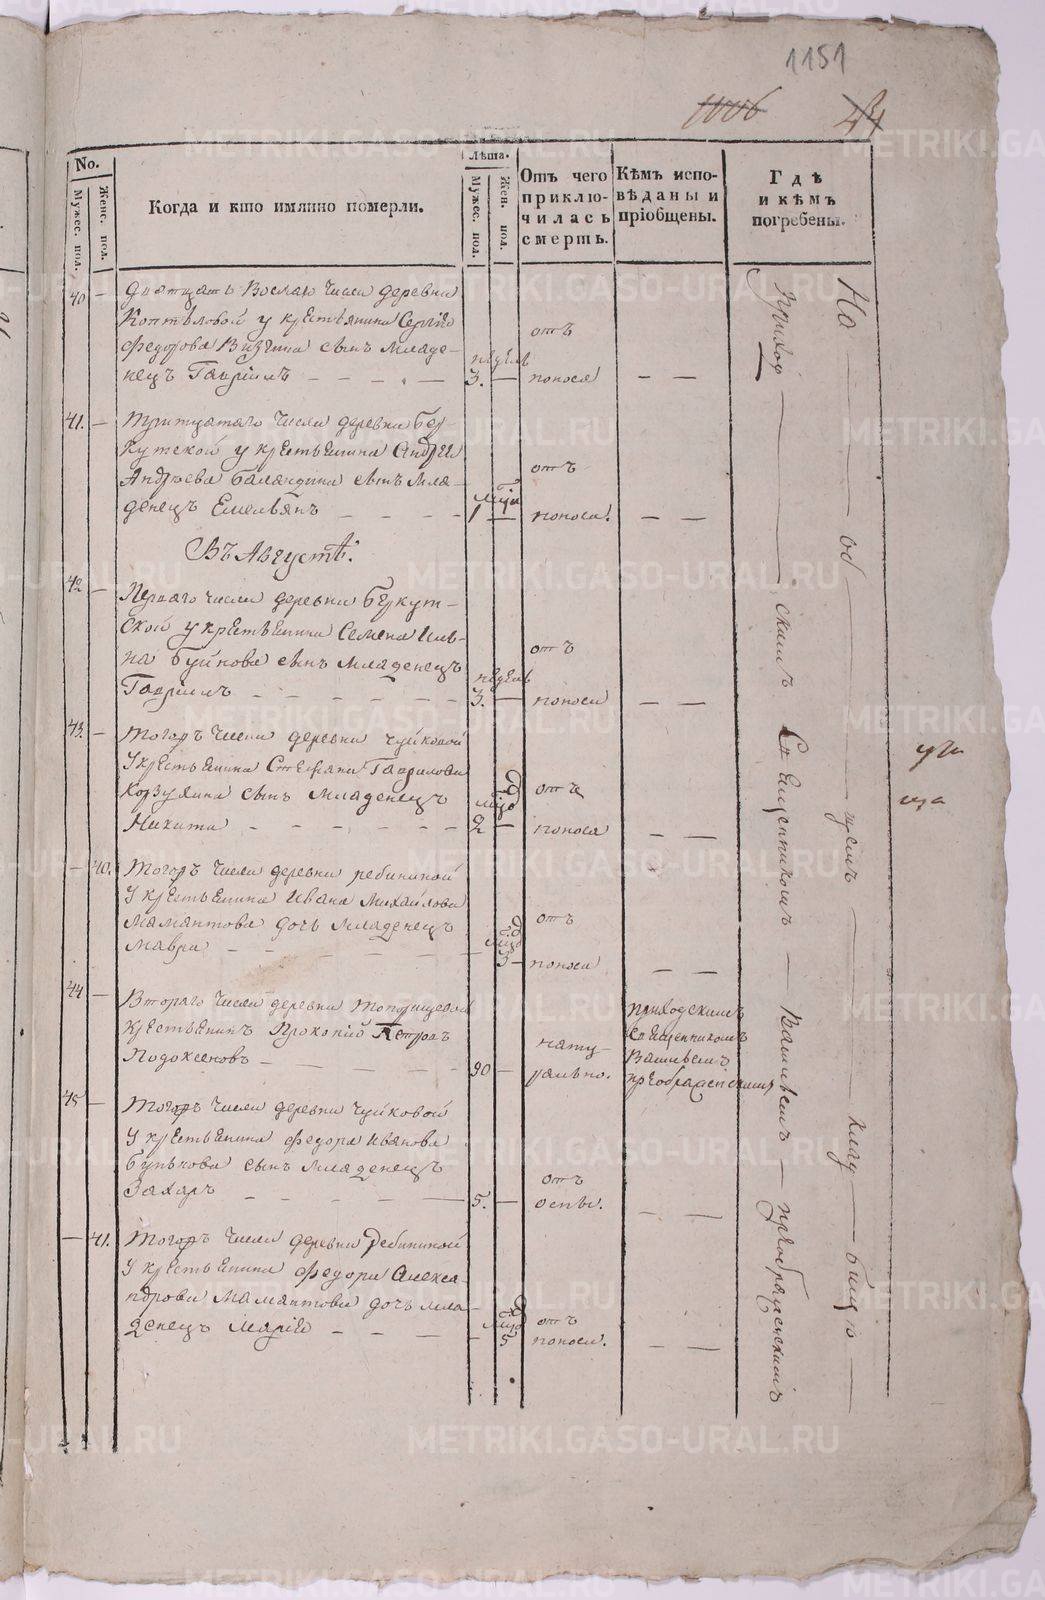 1151
1006
No.
Мужес. пол.
Женс. пол.
Когда и кто имянно померли.
Лѣта.
Мужес. пол.
Жен. пол.
Отъ чего
приклю-
чилась
смерть.
Кѣмъ испо-
вѣданы и
пріобщены.
Гдѣ
и кѣмъ
погребены.
40 —
числа деревни
Коптѣловой у крестьянина Сергія
Федорова сынъ младе-
нецъ Гавріилъ — — — —
недель
3. —
отъ
поноса
— —
41. —
Тритцатаго числа деревни Бер-
кутской у крестьянина Андрея
Андреева Баландина сынъ мла-
денецъ Емельянъ — — — —
1 —
отъ
поноса.
— —
Въ Августѣ.
42 —
Перваго числа деревни Беркут-
ской у крестьянина Семена Иль-
на Буйнова сынъ младенецъ
Гавріилъ — — — — —
недель
3. —
отъ
поноса
— —
43. —
Тогожъ числа деревни Чуйковой
у крестьянина Стефана Гаврилова
Корзунина сынъ младенецъ
Никита — — — — — —
2 —
отъ
поноса
— —
— 40.
Тогожъ числа деревни Ребининой
у крестьянина Ивана Михайлова
Мамантова дочь младенецъ
Мавра — — — — — —
3 —
отъ
поноса
— —
44 —
Втораго числа деревни Топорищевой
крестьянинъ Прокопій Петровъ
— — — —
90 —
нату-
рально.
приходскимъ
священникомъ
Васильемъ
преображенскимъ
45 —
Тогожъ числа деревни Чуйковой
у крестьянина Федора Иванова
Бунькова сынъ младенецъ
Захаръ — — — — —
5. —
отъ
оспы.
— —
— 41.
Тогожъ числа деревни Ребининой
у крестьянина Федора Алекса-
ндрова Мамантова дочь мла-
денецъ Марія — — — —
5
отъ
поноса.
— —
На — об — щемъ — клад — бищѣ —
приход — скимъ священникомъ — Васильемъ — преображенскимъ
METRIKI.GASO-URAL.RU